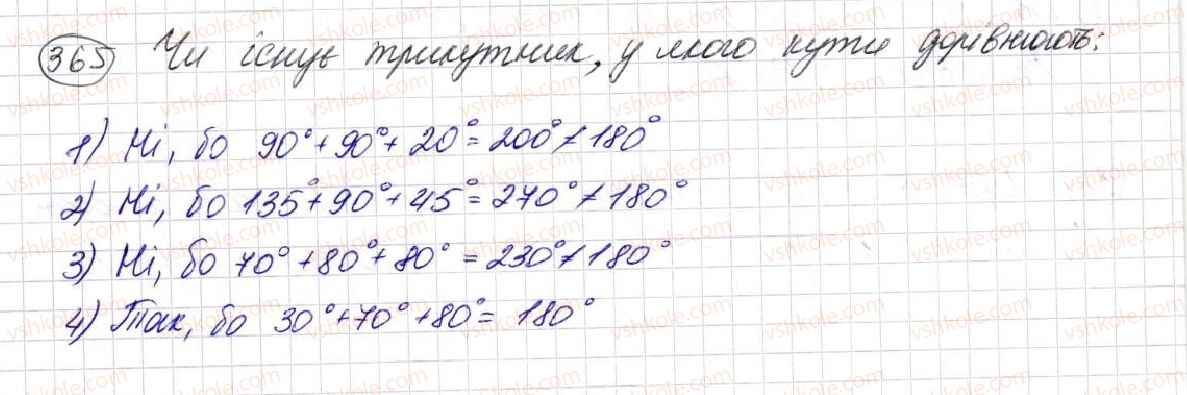 365 Чи існує трикутник, у якого кути дорівнюють:
1) Ні, бо 90° + 90° + 20° = 200° ≠ 180°
2) Ні, бо 135° + 90° + 45° = 270° ≠ 180°
3) Ні, бо 70° + 80° + 80° = 230° ≠ 180°
4) Так, бо 30° + 70° + 80° = 180°